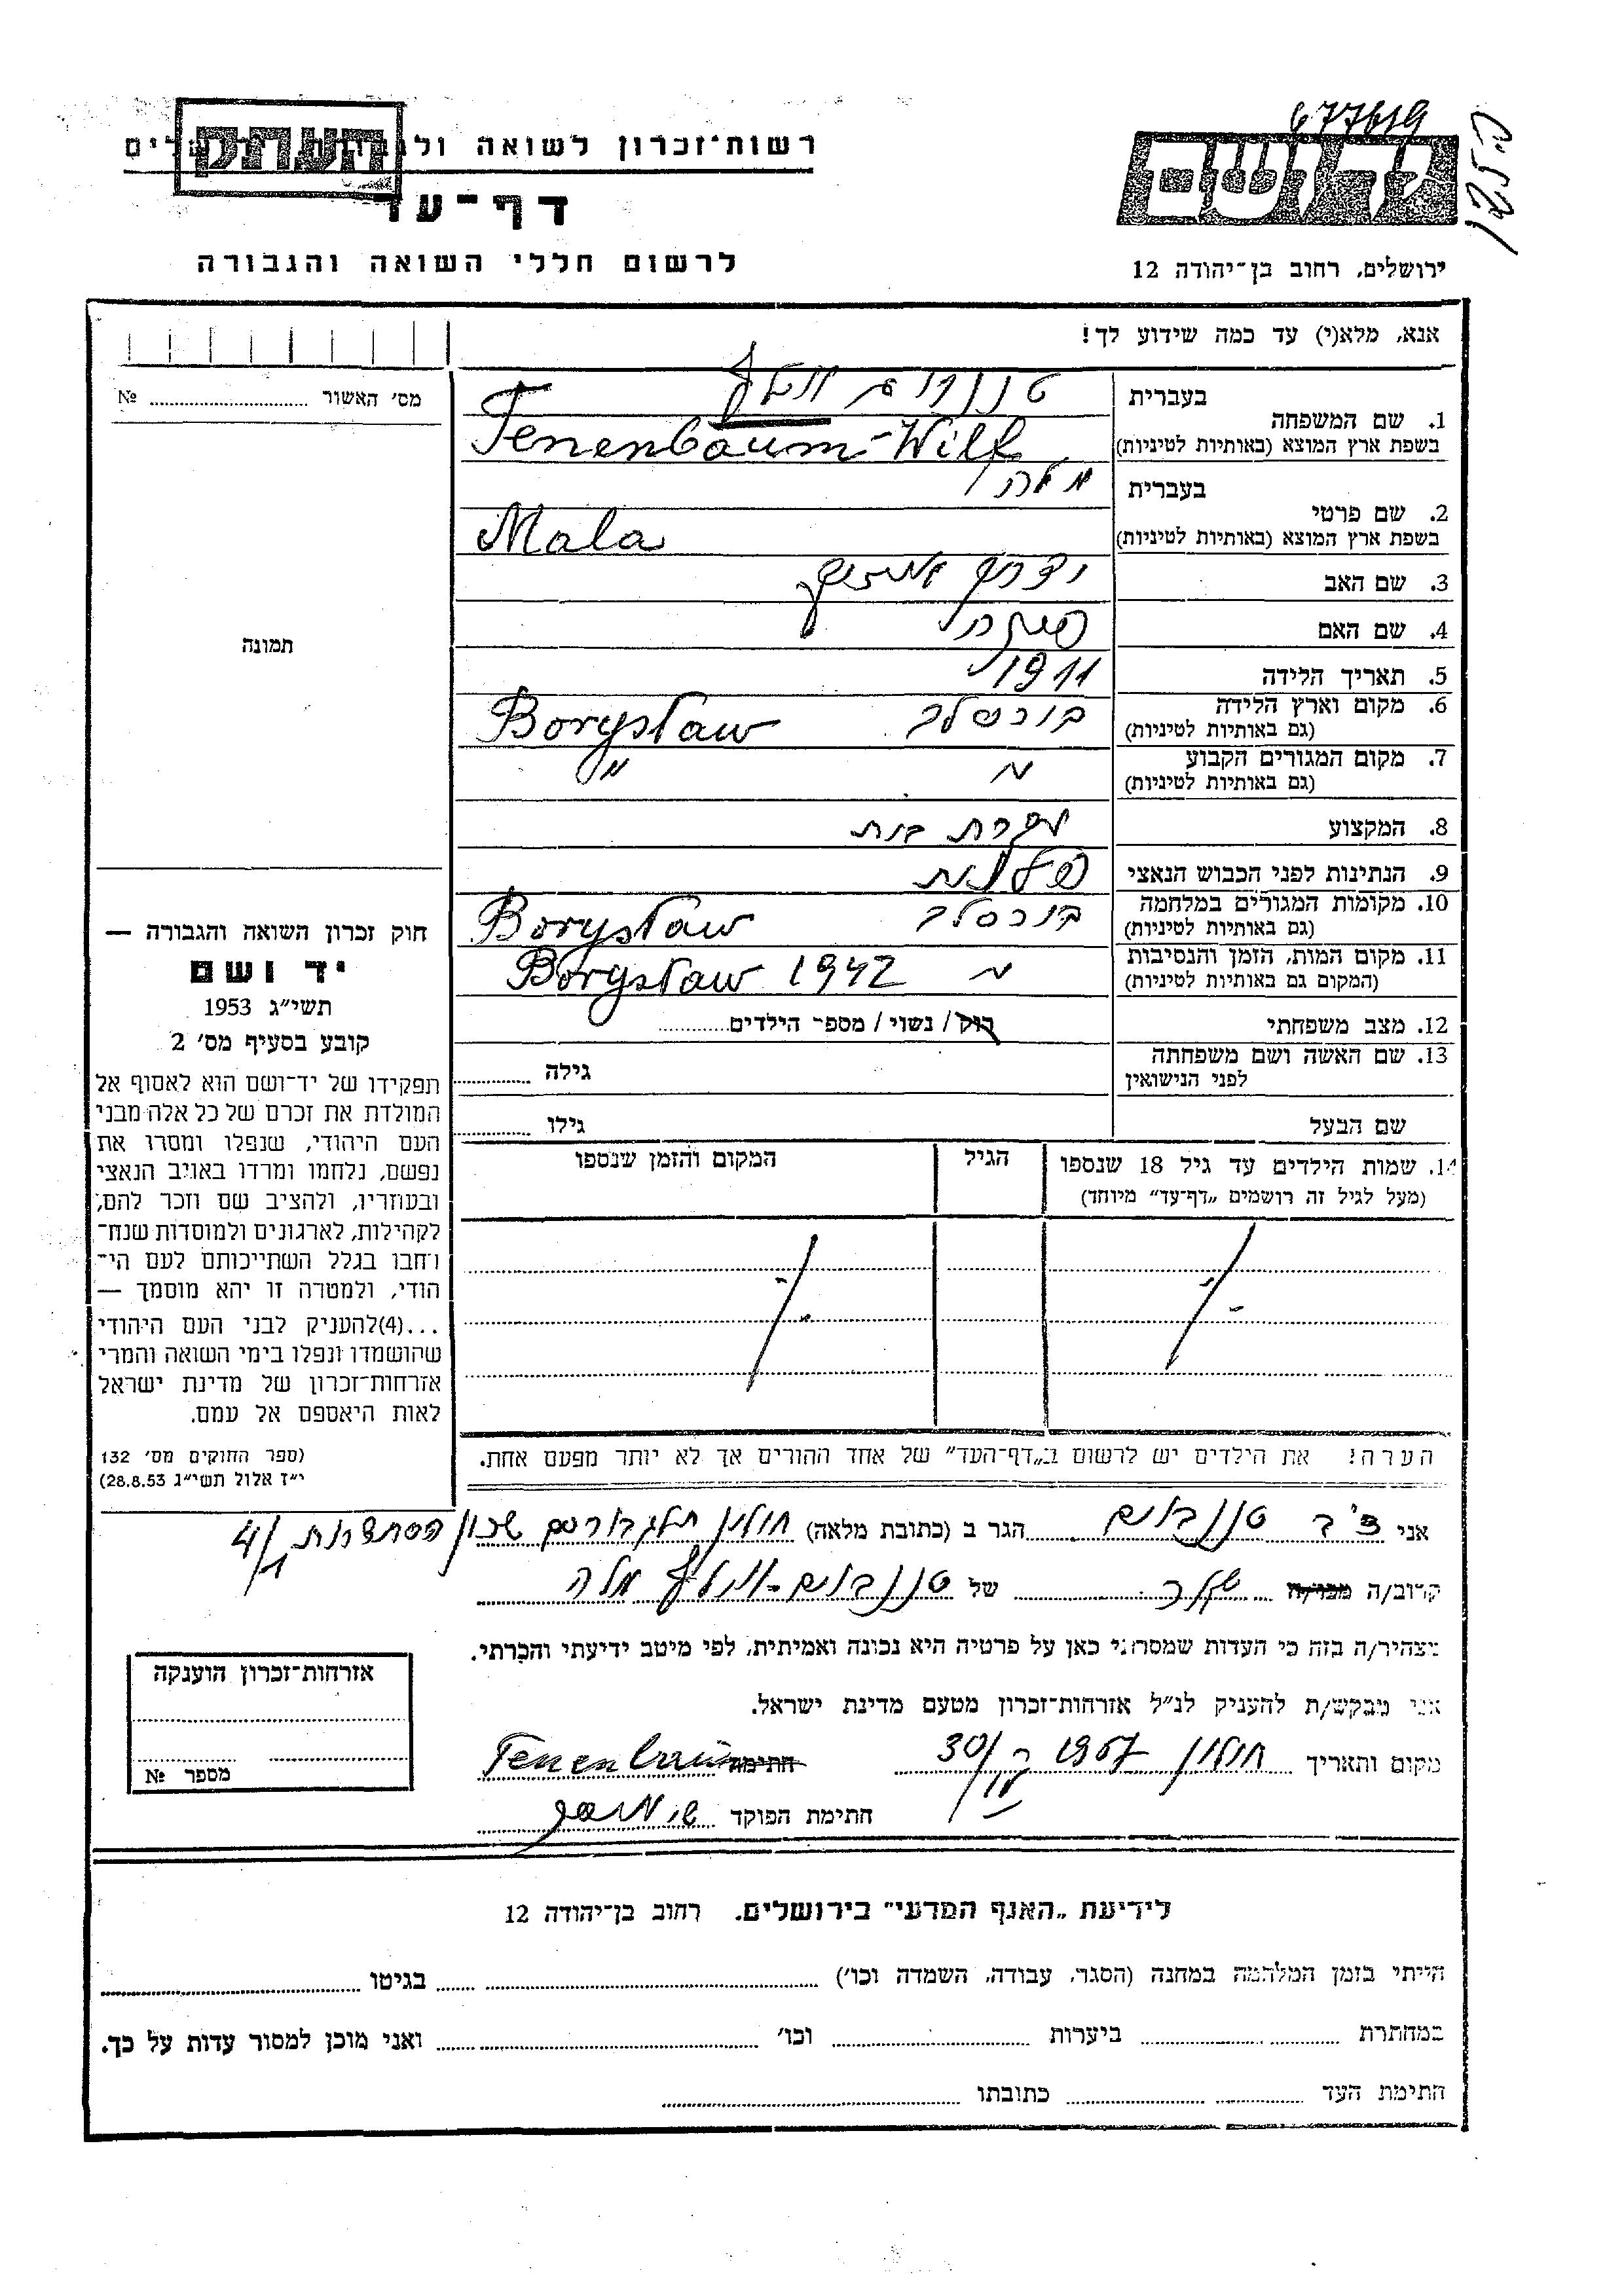 677619
העתק
רשות־זכרון לשואה ולגבורה ירושלים
דף־עד
לרשום חללי השואה והגבורה
יד ושם
ירושלים, רחוב בן־יהודה 12
אנא, מלא(י) עד כמה שידוע לך!
מס' האשור № 
תמונה
1. שם המשפחה
בעברית
טננבוים וילף
בשפת ארץ המוצא (באותיות לטיניות)
Tenenbaum-Wilf
2. שם פרטי
בעברית
מלה
בשפת ארץ המוצא (באותיות לטיניות)
Mala
3. שם האב
4. שם האם
5. תאריך הלידה 1911
6. מקום וארץ הלידה
(גם באותיות לטיניות)
בוריסלב Borysław
7. מקום המגורים הקבוע
(גם באותיות לטיניות)
" "
8. המקצוע עקרת בית
9. הנתינות לפני הכבוש הנאצי פולנית
10. מקומות המגורים במלחמה
(גם באותיות לטיניות)
בוריסלב Borysław
11. מקום המות, הזמן והנסיבות
(המקום גם באותיות לטיניות)
" Borysław 1942
12. מצב משפחתי רוק / נשוי / מספר הילדים
13. שם האשה ושם משפחתה
לפני הנישואין
גילה
שם הבעל גילו
14. שמות הילדים עד גיל 18 שנספו
(מעל לגיל זה רושמים „דף־עד" מיוחד)
הגיל
המקום והזמן שנספו
הערה! את הילדים יש לרשום ב„דף־העד" של אחד ההורים אך לא יותר מפעם אחת.
חוק זכרון השואה והגבורה —
יד ושם
תשי"ג 1953
קובע בסעיף מס' 2
תפקידו של יד־ושם הוא לאסוף אל
המולדת את זכרם של כל אלה מבני
העם היהודי, שנפלו ומסרו את
נפשם, נלחמו ומרדו באויב הנאצי
ובעוזריו, ולהציב שם וזכר להם,
לקהילות, לארגונים ולמוסדות שנח־
רחבו בגלל השתייכותם לעם הי־
הודי, ולמטרה זו יהא מוסמך —
...(4)להעניק לבני העם היהודי
שהושמדו ונפלו בימי השואה והמרי
אזרחות־זכרון של מדינת ישראל
לאות היאספם אל עמם.
(ספר החוקים מס' 132
י"ז אלול תשי"ג 28.8.53)
אני צבי טננבוים הגר ב (כתובת מלאה) חולון תל גבורים שכון הסתדרות 4/1
קרוב/ה מכר/ה של טננבוים-וילף מלה
מצהיר/ה בזה כי העדות שמסרתי כאן על פרטיה היא נכונה ואמיתית, לפי מיטב ידיעתי והכרתי.
אני מבקש/ת להעניק לנ"ל אזרחות־זכרון מטעם מדינת ישראל.
מקום ותאריך חולון 1957 30/ חתימה Tenenbaum
חתימת הפוקד
אזרחות־זכרון הוענקה
מספר №
לידיעת „האגף המדעי" בירושלים. רחוב בן־יהודה 12
הייתי בזמן המלחמה במחנה (הסגר, עבודה, השמדה וכו') בגיטו
במחתרת ביערות וכו' ואני מוכן למסור עדות על כך.
חתימת העד כתובתו